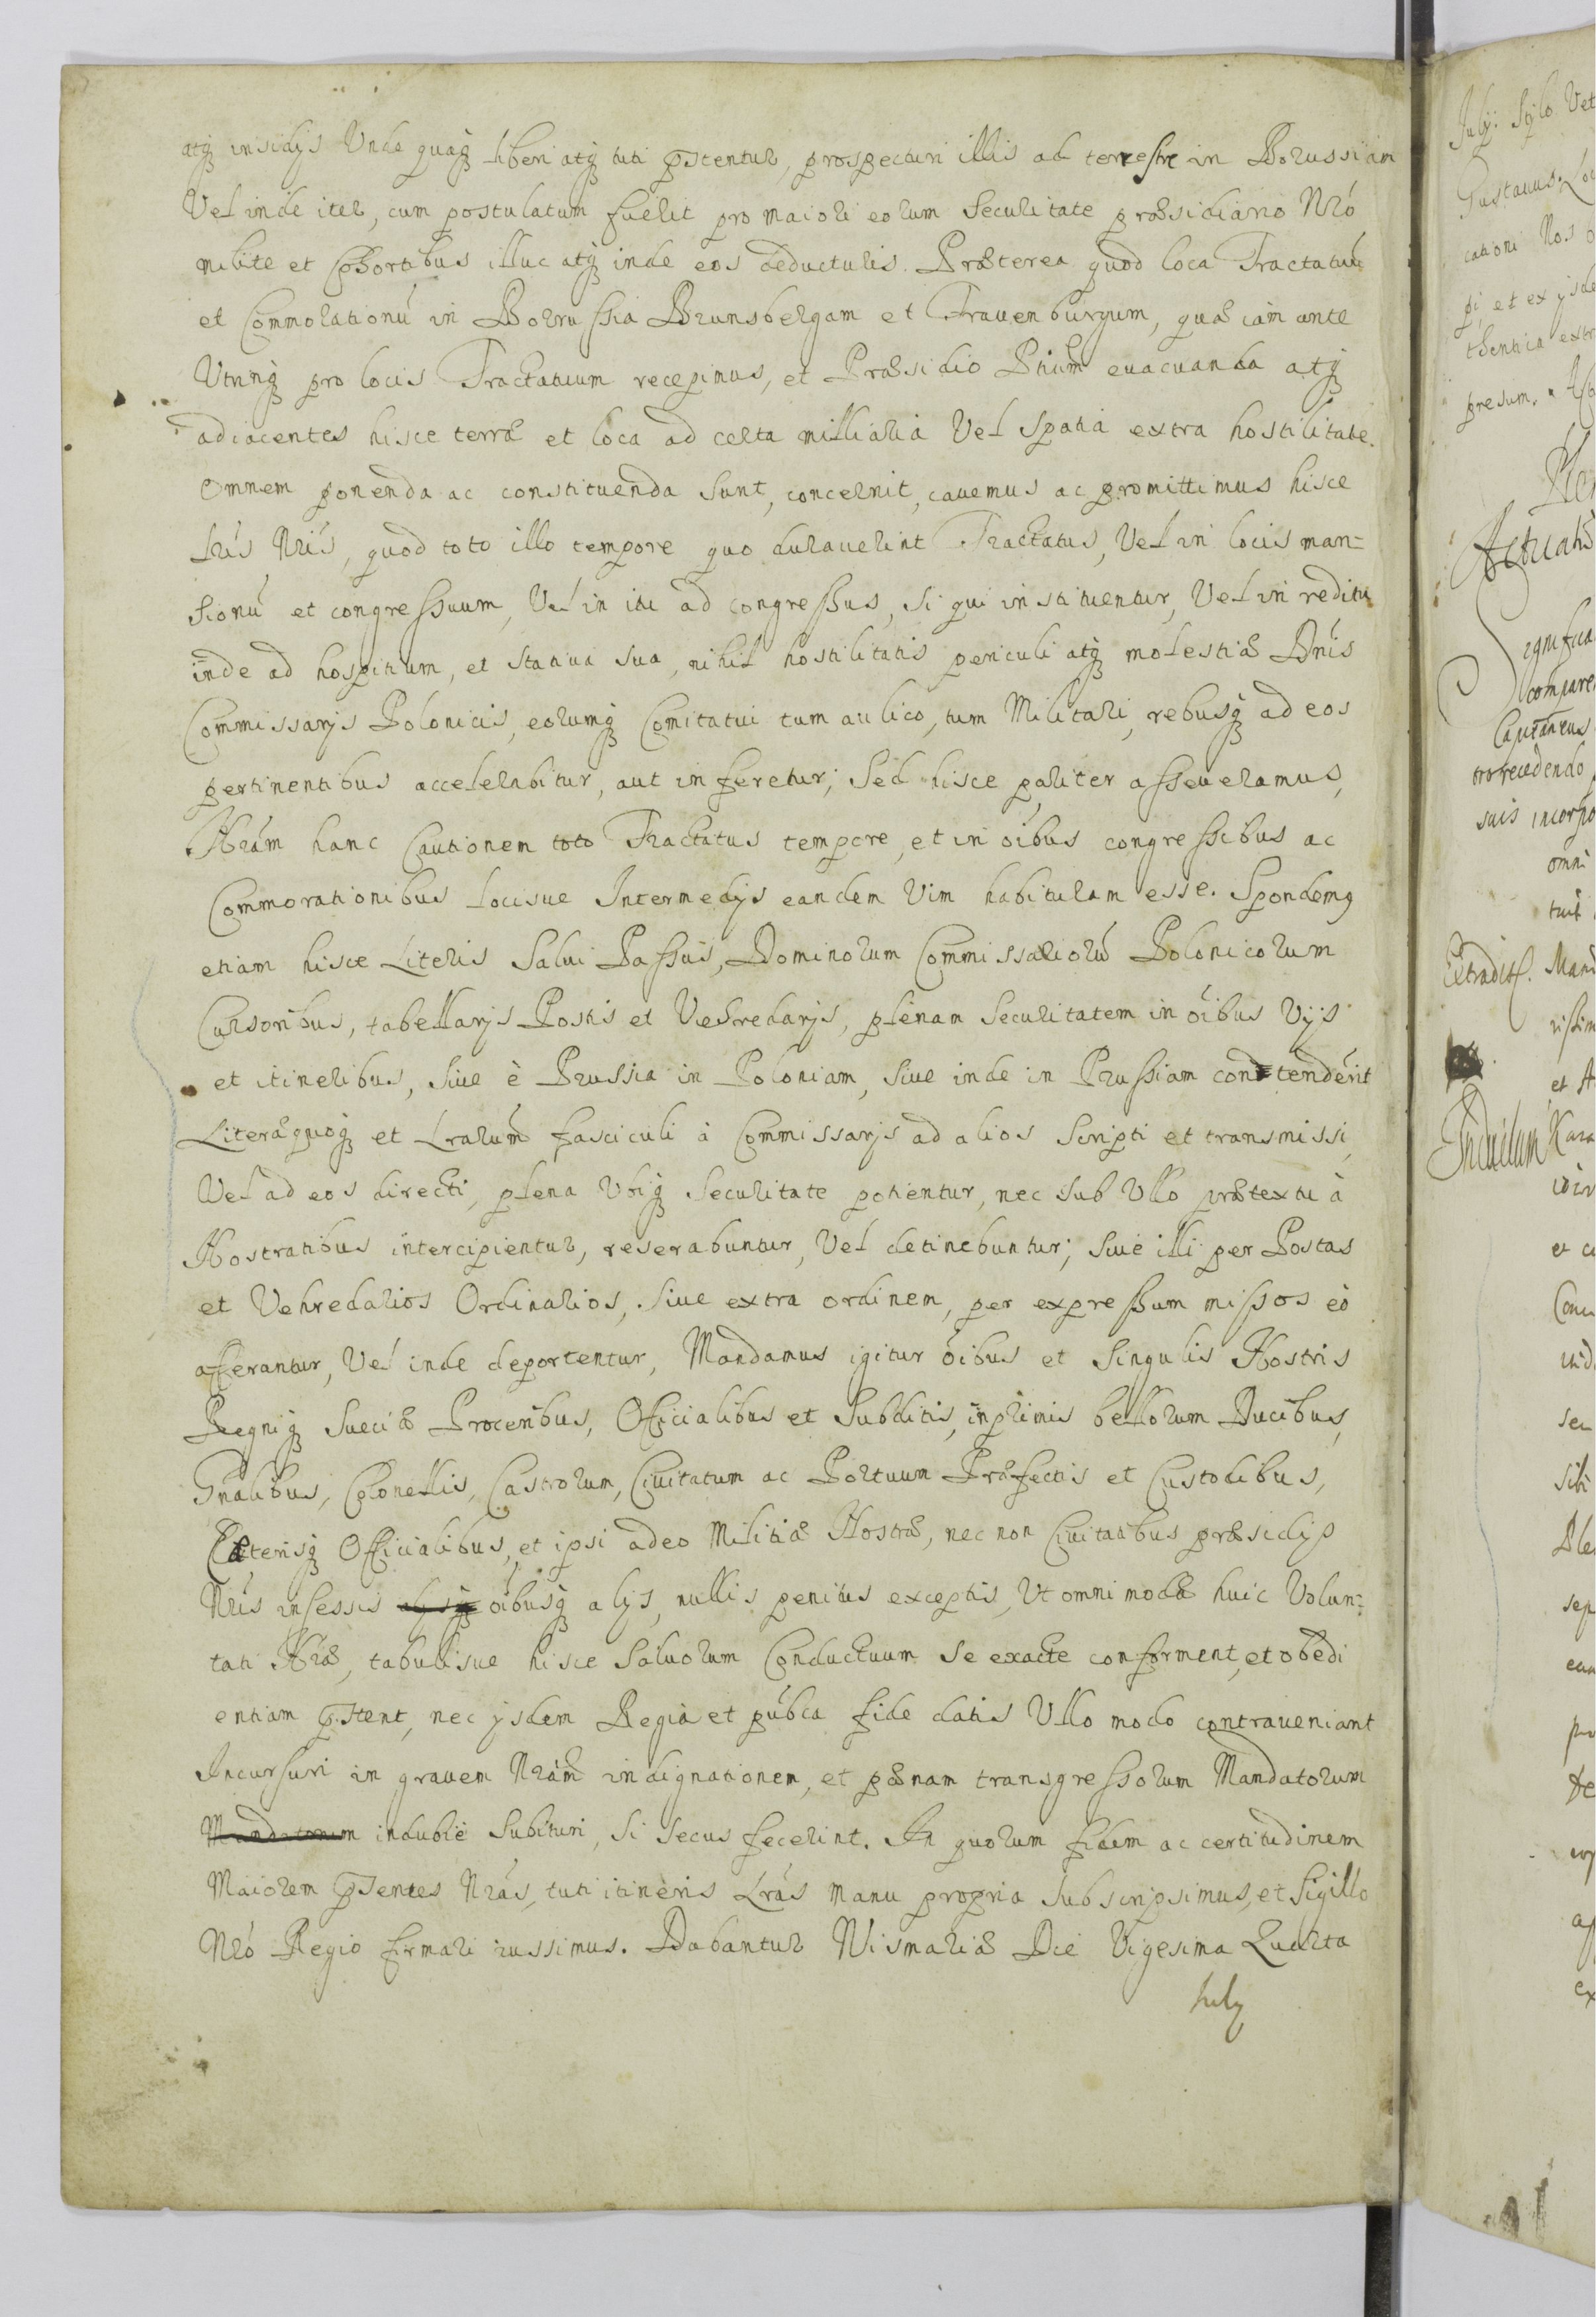 atq insidijs Unde quaq liberi atq tuti pstentur, prospecturi illis ad terrestre in Borussiam
Vel inde iter, cum postulatum fuerit pro maiori eorum securitate præsidiario Nro
milite et Cohortibus illuc atq inde eos deducturis. Præterea quod loca Tractatuũ
et Commorationũ in Borrussia Brunsbergam et Frauenburgum, quæ iam ante
Utrinq pro locis Tractatuum recepimus, et Præsidio Prium euacuanda atq
adiacentes hisce terræ et loca ad certa milliaria Vel spatia extra hostilitate.
Omnem ponenda ac constituenda sunt, concernit, cauemus ac promittimus hisce
Lris Nris, quod toto illo tempore quo durauerint Tractatus, Vel in locis man-
sionũ et congressuum, Vel in itu ad congressus, si qui instituentur, Vel in reditu
inde ad hospitium, et statiua sua, nihil hostilitatis periculi atq molestiæ Dnis
Commissarijs Polonicis, eorumq Comitatui tum aulico, tum Militari, rebusq ad eos
pertinentibus accelerabitur, aut inferetur; Sed hisce pariter asseueramus,
Nram hanc Cautionem toto Tractatus tempore, et in oibus congressibus ac
Commorationibus locisue Intermedijs eandem Vim habituram esse. Spondemq
etiam hisce Literis Salui Passus, Dominorum Commissariorũ Polonicorum
Cursoribus, tabellarijs Postis et Vehredarijs, plenam securitatem in oibus Vijs
et itineribus, siue è Prussia in Poloniam, siue inde in Prussiam contenderit
Literæ quoq et Lrarum fasciculi à Commissarijs ad alios scripti et transmissi,
Vel ad eos directi, plena Ubiq securitate potientur, nec sub Ullo prætextu à
Nostratibus intercipientur, reserabuntur, Vel detinebuntur; siue illi per Postas
et Vehredarios Ordinarios, siue extra ordinem, per expressum missos eò
afferantur, Vel inde deportentur, Mandamus igitur oibus et singulis Nostris
Regniq Sueciæ Proceribus, Officialibus et Subditis, inprimis bellorum Ducibus,
Gnalibus, Colonellis, Castrorum, Ciuitatum ac Portuum Præfectis et Custodibus,
Cæterisq Officialibus, et ipsi adeo Militiæ Nostræ, nec non Ciuitatibus præsidijs
Nris insessis alijsq oibusq alijs, nullis penitus exceptis, Ut omnimodæ huic Volun-
tati Nræ, tabulisue hisce Saluorum Conductuum se exacte conforment, et obedi
entiam pstent, nec ijsdem Regia et pubca fide datis Ullo modo contraueniant
Incursuri in grauem Nram indignationem, et pœnam transgressorum Mandatorum
Mandatorum indubiè subituri, si secus fecerint. In quorum fidem ac certitudinem
Maiorem psentes Nras, tuti itineris Lras manu propria subscripsimus, et Sigillo
Nro Regio firmari iussimus. Dabantur Wismariæ Die Vigesima Quarta
July
July. Stylo Vet
Gustauus. Lo